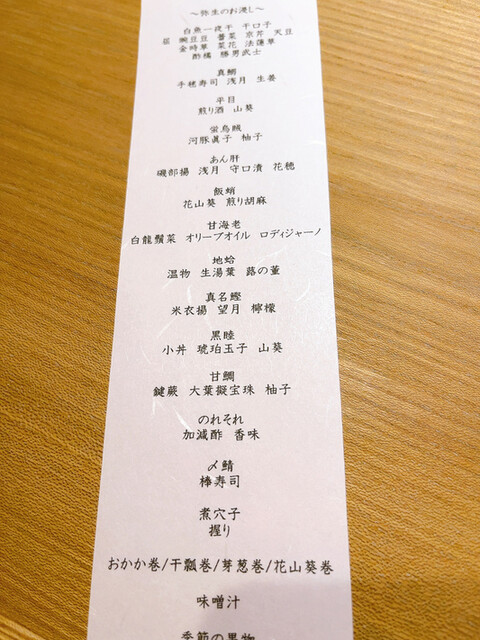 ~弥生のお浸し~
白魚一夜干 干口子
豌豆豆 蕾菜 京芹 天豆
金時草 菜花 法蓮草
酢橘 勝男武士
真鯛
手毬寿司 浅月 生姜
平目
煎り酒 山葵
蛍烏賊
河豚眞子 柚子
あん肝
磯部揚 浅月 守口漬 花穂
飯蛸
花山葵 煎り胡麻
甘海老
白龍鬚菜 オリーブオイル ロディジャーノ
地蛤
温物 生湯葉 蕗の薹
真名鰹
米衣揚 望月 檸檬
黒睦
小丼 琥珀玉子 山葵
甘鯛
鍵蕨 大葉擬宝珠 柚子
のれそれ
加減酢 香味
〆鯖
棒寿司
煮穴子
握り
おかか巻/干瓢巻/芽葱巻/花山葵巻
味噌汁
季節の果物